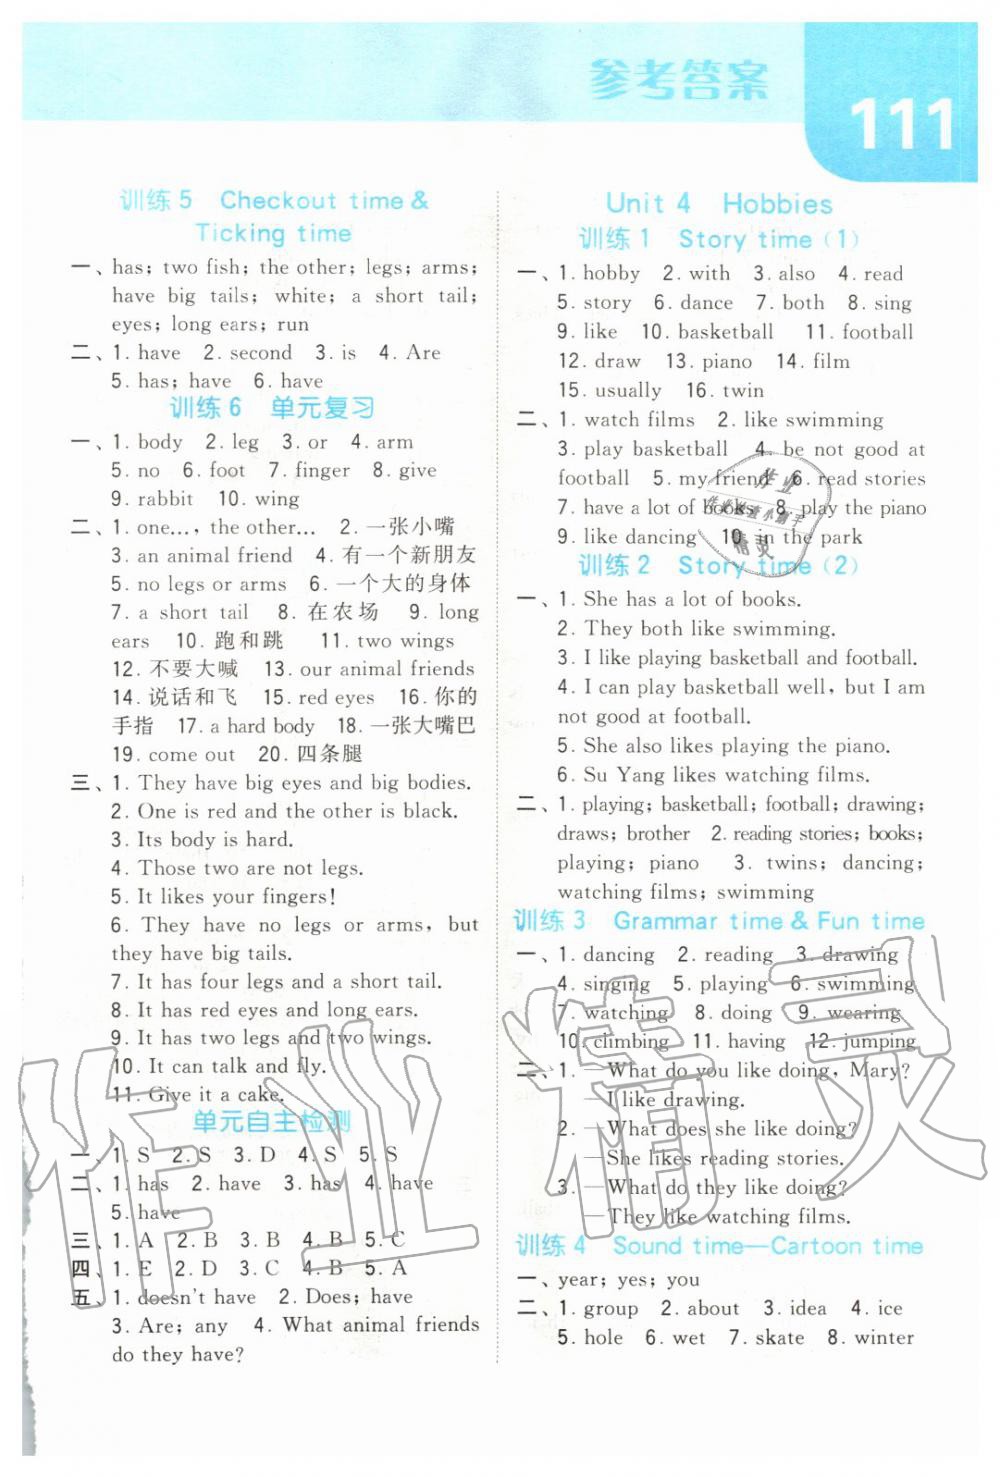 参考答案
111
训练 5 Checkout time &
Ticking time
一、has; two fish; the other; legs; arms;
have big tails; white; a short tail;
eyes; long ears; run
二、1. have 2. second 3. is 4. Are
5. has; have 6. have
训练 6 单元复习
一、1. body 2. leg 3. or 4. arm
5. no 6. foot 7. finger 8. give
9. rabbit 10. wing
二、1. one..., the other... 2. 一张小嘴
3. an animal friend 4. 有一个新朋友
5. no legs or arms 6. 一个大的身体
7. a short tail 8. 在农场 9. long
ears 10. 跑和跳 11. two wings
12. 不要大喊 13. our animal friends
14. 说话和飞 15. red eyes 16. 你的
手指 17. a hard body 18. 一张大嘴巴
19. come out 20. 四条腿
三、1. They have big eyes and big bodies.
2. One is red and the other is black.
3. Its body is hard.
4. Those two are not legs.
5. It likes your fingers!
6. They have no legs or arms, but
they have big tails.
7. It has four legs and a short tail.
8. It has red eyes and long ears.
9. It has two legs and two wings.
10. It can talk and fly.
11. Give it a cake.
单元自主检测
一、1. S 2. S 3. D 4. S 5. S
二、1. has 2. have 3. has 4. have
5. have
三、1. A 2. B 3. B 4. B 5. C
四、1. E 2. D 3. C 4. B 5. A
五、1. doesn't have 2. Does; have
3. Are; any 4. What animal friends
do they have?
Unit 4 Hobbies
训练 1 Story time (1)
一、1. hobby 2. with 3. also 4. read
5. story 6. dance 7. both 8. sing
9. like 10. basketball 11. football
12. draw 13. piano 14. film
15. usually 16. twin
二、1. watch films 2. like swimming
3. play basketball 4. be not good at
football 5. my friend 6. read stories
7. have a lot of books 8. play the piano
9. like dancing 10. in the park
训练 2 Story time (2)
一、1. She has a lot of books.
2. They both like swimming.
3. I like playing basketball and football.
4. I can play basketball well, but I am
not good at football.
5. She also likes playing the piano.
6. Su Yang likes watching films.
二、1. playing; basketball; football; drawing;
draws; brother 2. reading stories; books;
playing; piano 3. twins; dancing;
watching films; swimming
训练 3 Grammar time & Fun time
一、1. dancing 2. reading 3. drawing
4. singing 5. playing 6. swimming
7. watching 8. doing 9. wearing
10. climbing 11. having 12. jumping
二、1. —What do you like doing, Mary?
—I like drawing.
2. —What does she like doing?
—She likes reading stories.
3. —What do they like doing?
—They like watching films.
训练 4 Sound time—Cartoon time
一、year; yes; you
二、1. group 2. about 3. idea 4. ice
5. hole 6. wet 7. skate 8. winter
作业精灵